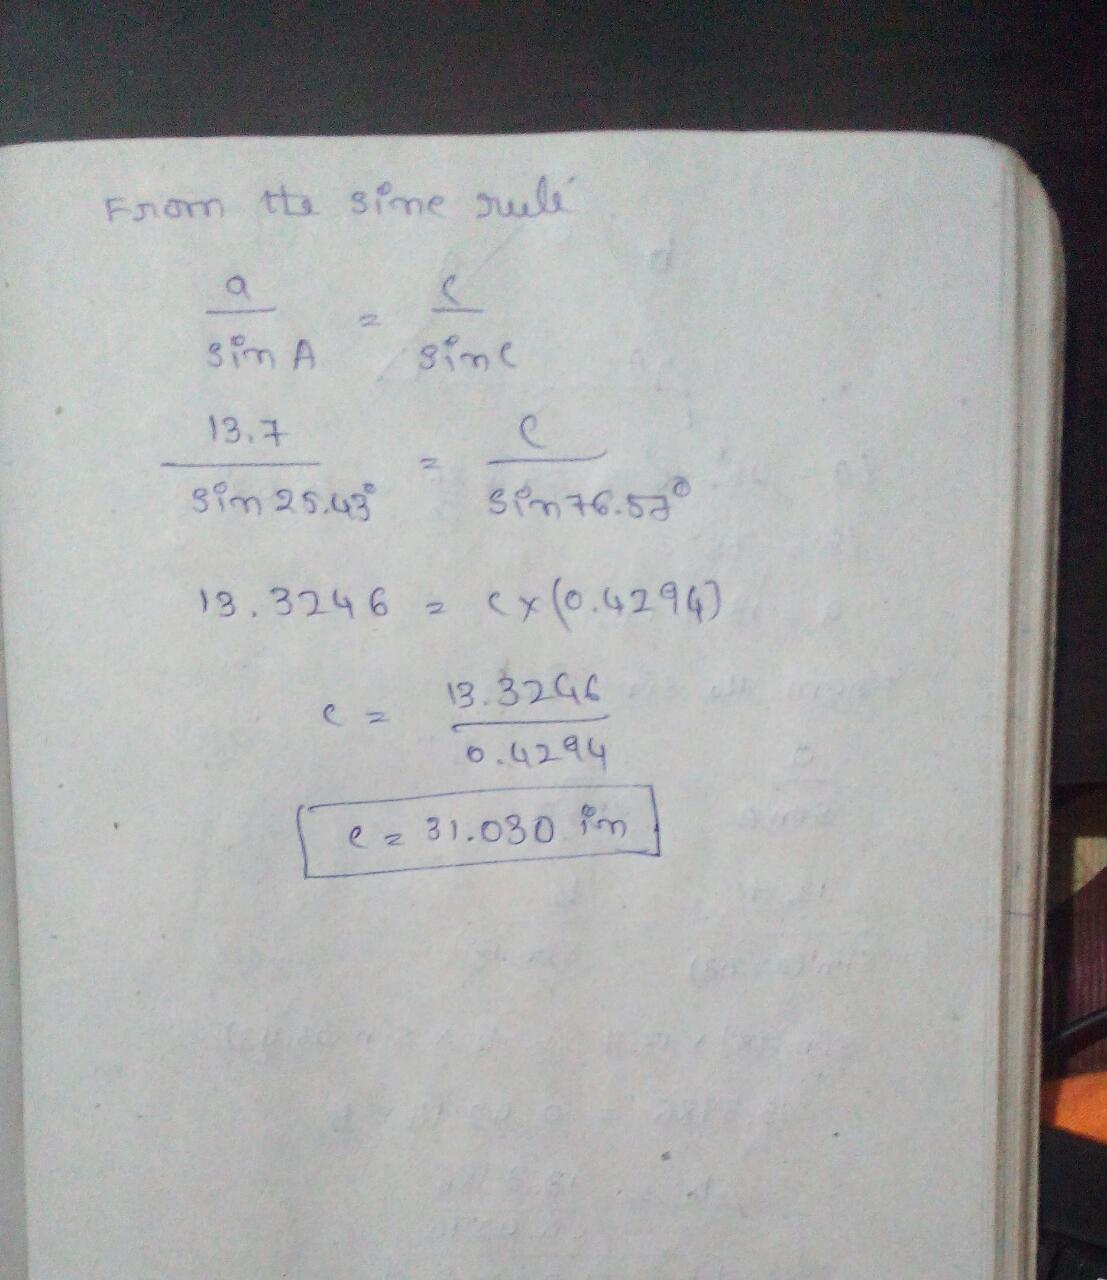 From the sine rule
a / sin A = c / sin C
13.7 / sin 25.43° = c / sin 76.57°
13.3246 = c x (0.4294)
c = 13.3246 / 0.4294
c = 31.030 in